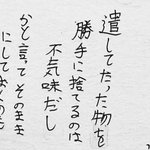 遣してたった物を
勝手に捨てるのは
不気味だし
かと言って そのまま
にしておくのも